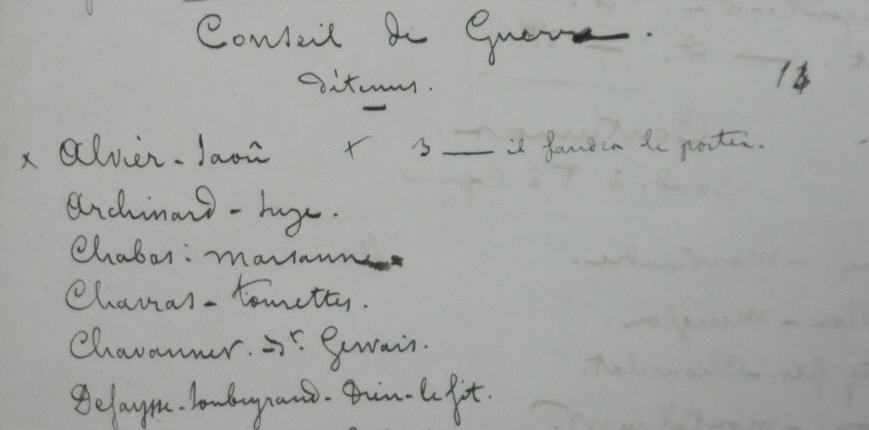 Conseil de Guerre.
Détenus.
x Alvier - Saoû x 3 — il faudra le porter.
Archinard - Suze.
Chabas : Marsanne
Charras - Tourettes.
Chavanner. St. Gervais.
Defaysse - Soubeyrand - Dieu-le-fit.